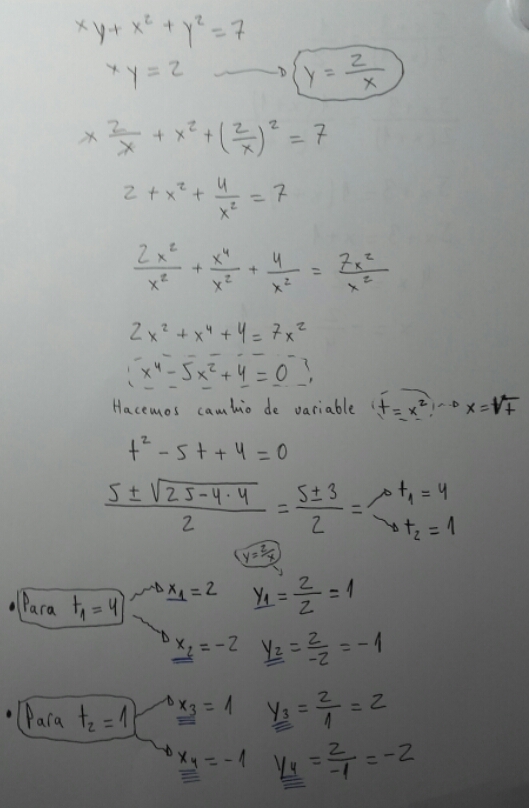 xy + x² + y² = 7
xy = 2 → y = 2/x
x 2/x + x² + (2/x)² = 7
2 + x² + 4/x² = 7
2x²/x² + x⁴/x² + 4/x² = 7x²/x²
2x² + x⁴ + 4 = 7x²
x⁴ - 5x² + 4 = 0
Hacemos cambio de variable t = x² → x = √t
t² - 5t + 4 = 0
(5 ± √(25 - 4·4))/2 = (5 ± 3)/2 = → t₁ = 4
→ t₂ = 1
y = 2/x
• Para t₁ = 4 → x₁ = 2 y₁ = 2/2 = 1
→ x₂ = -2 y₂ = 2/-2 = -1
• Para t₂ = 1 → x₃ = 1 y₃ = 2/1 = 2
→ x₄ = -1 y₄ = 2/-1 = -2